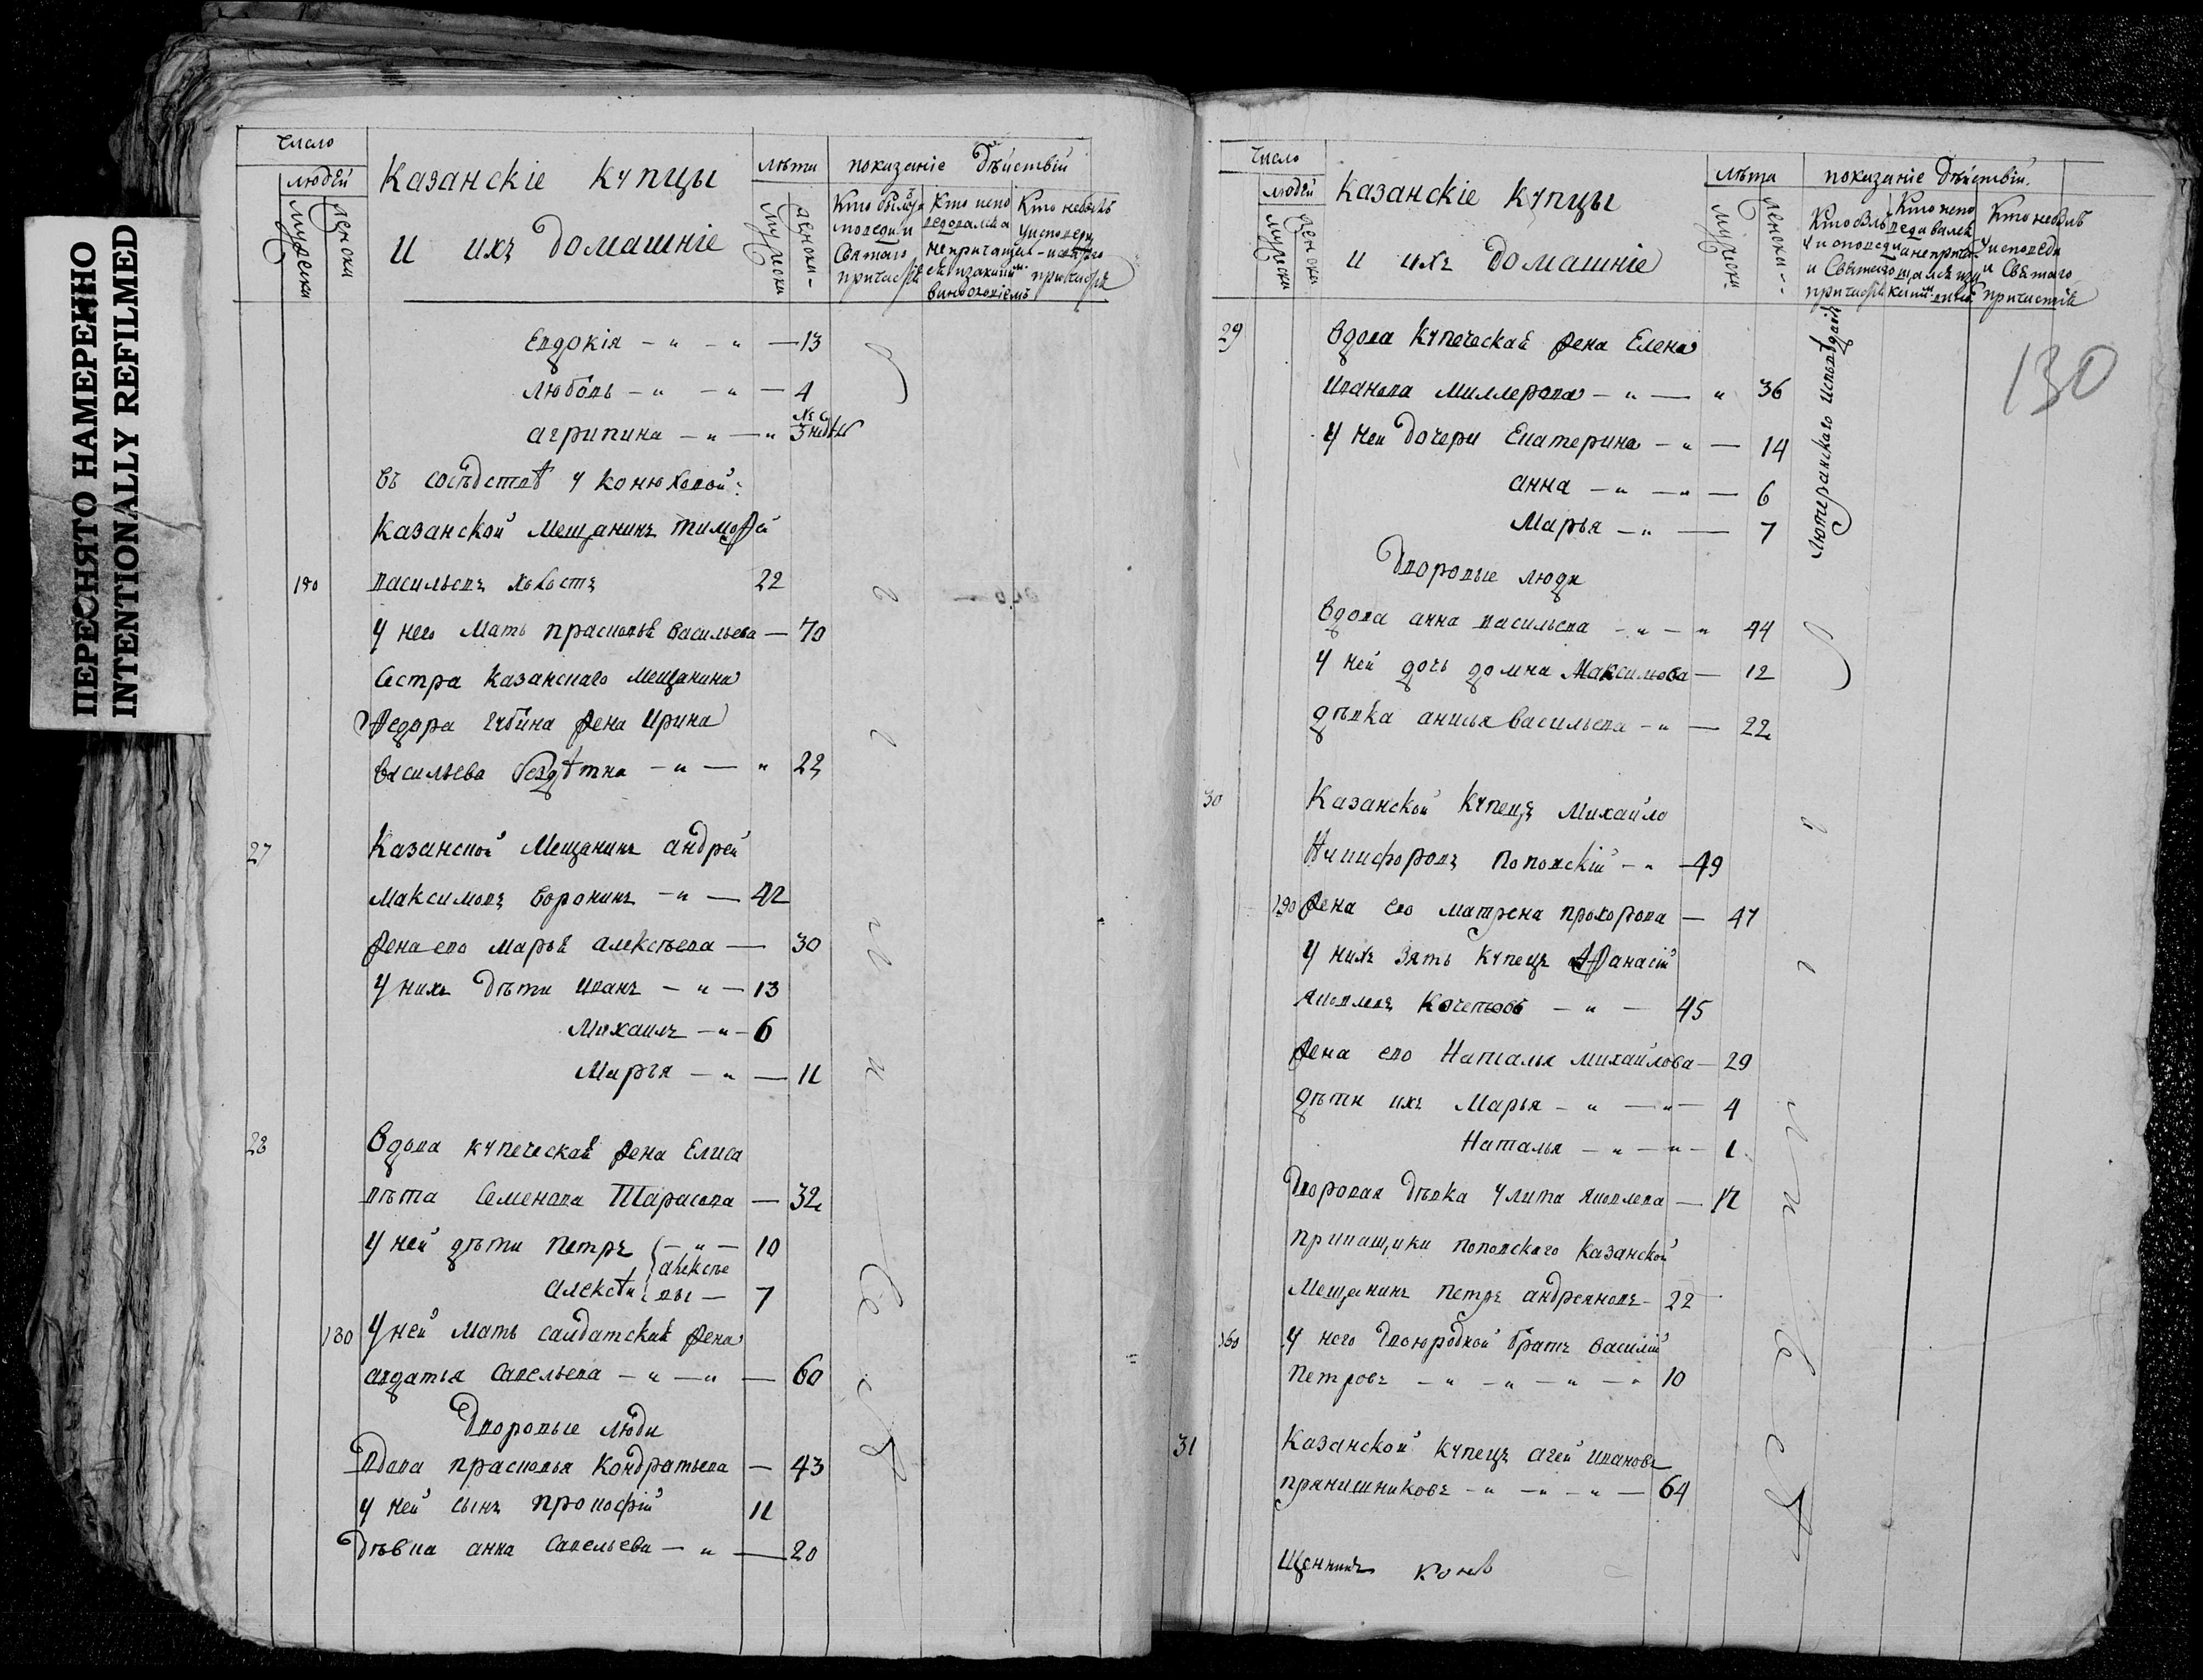 ПЕРЕСНЯТО НАМЕРЕННО
INTENTIONALLY REFILMED
число
людей
мужеска
женска
Казанскіе купцы
и ихъ домашніе
лѣта
мужеска
женска
показаніе дѣйствій
Кто былъ у исповеди и Святаго причастія
Кто исповедовался а не причащался и за какимъ винословіемъ
Кто не былъ у исповеди и Святаго причастія
Евдокія — 13
Любовь — 4
агрипина — 3 недѣли
въ сосѣдствѣ у Конюховой:
Казанской Мещанинъ тимоѳей
190 васильевъ 22
у него мать прасковья васильева — 70
Сестра Казанскаго мещанина
Ѳедора Губина жена Ирина
васильева бездѣтна — 22
27 Казанской Мещанинъ андрей
Максимовъ воронинъ — 42
жена его марья алексѣева — 30
у нихъ дѣти иванъ — 13
Михаилъ — 6
Марья — 11
28 вдова купеческая жена Елиса
вѣта Семенова Тарасова — 32
у ней дѣти петръ — 10
алексѣй алексѣевы — 7
180 у ней мать салдатская жена
авдатья Савельева — 60
Дворовые люди
вдова прасковья Кондратьева — 43
у ней сынъ прокофій 11
Дѣвка анна Савельева — 20
число
людей
мужеска
женска
Казанскіе купцы
и ихъ домашніе
лѣта
мужеска
женска
показаніе дѣйствій
Кто былъ у исповеди и Святаго причастія
Кто исповедовался а не причащался
Кто не былъ у исповеди и Святаго причастія
130
29 вдова купеческая жена Елена
иванова миллерова — 36
у ней дочери Екатерина — 14
анна — 6
Марья — 7
лютеранскаго исповѣданія
Дворовые люди
вдова анна васильева — 44
у ней дочь домна Максимова — 12
дѣвка анисья васильева — 22
30 Казанской купецъ Михайло
Никифоровъ поповскій — 49
190 жена его матрена прохорова — 47
у нихъ зять купецъ Афанасій
яковлевъ Кочетовъ — 45
жена его Наталья михайлова — 29
дѣти ихъ Марья — 4
Наталья — 1
Дворовая дѣвка улита яковлева — 17
прикащики поповскаго казанской
Мещанинъ петръ андреяновъ — 22
у него двоюродной братъ василій
Петровъ — 10
31 Казанской купецъ агей ивановъ
прянишниковъ — 64